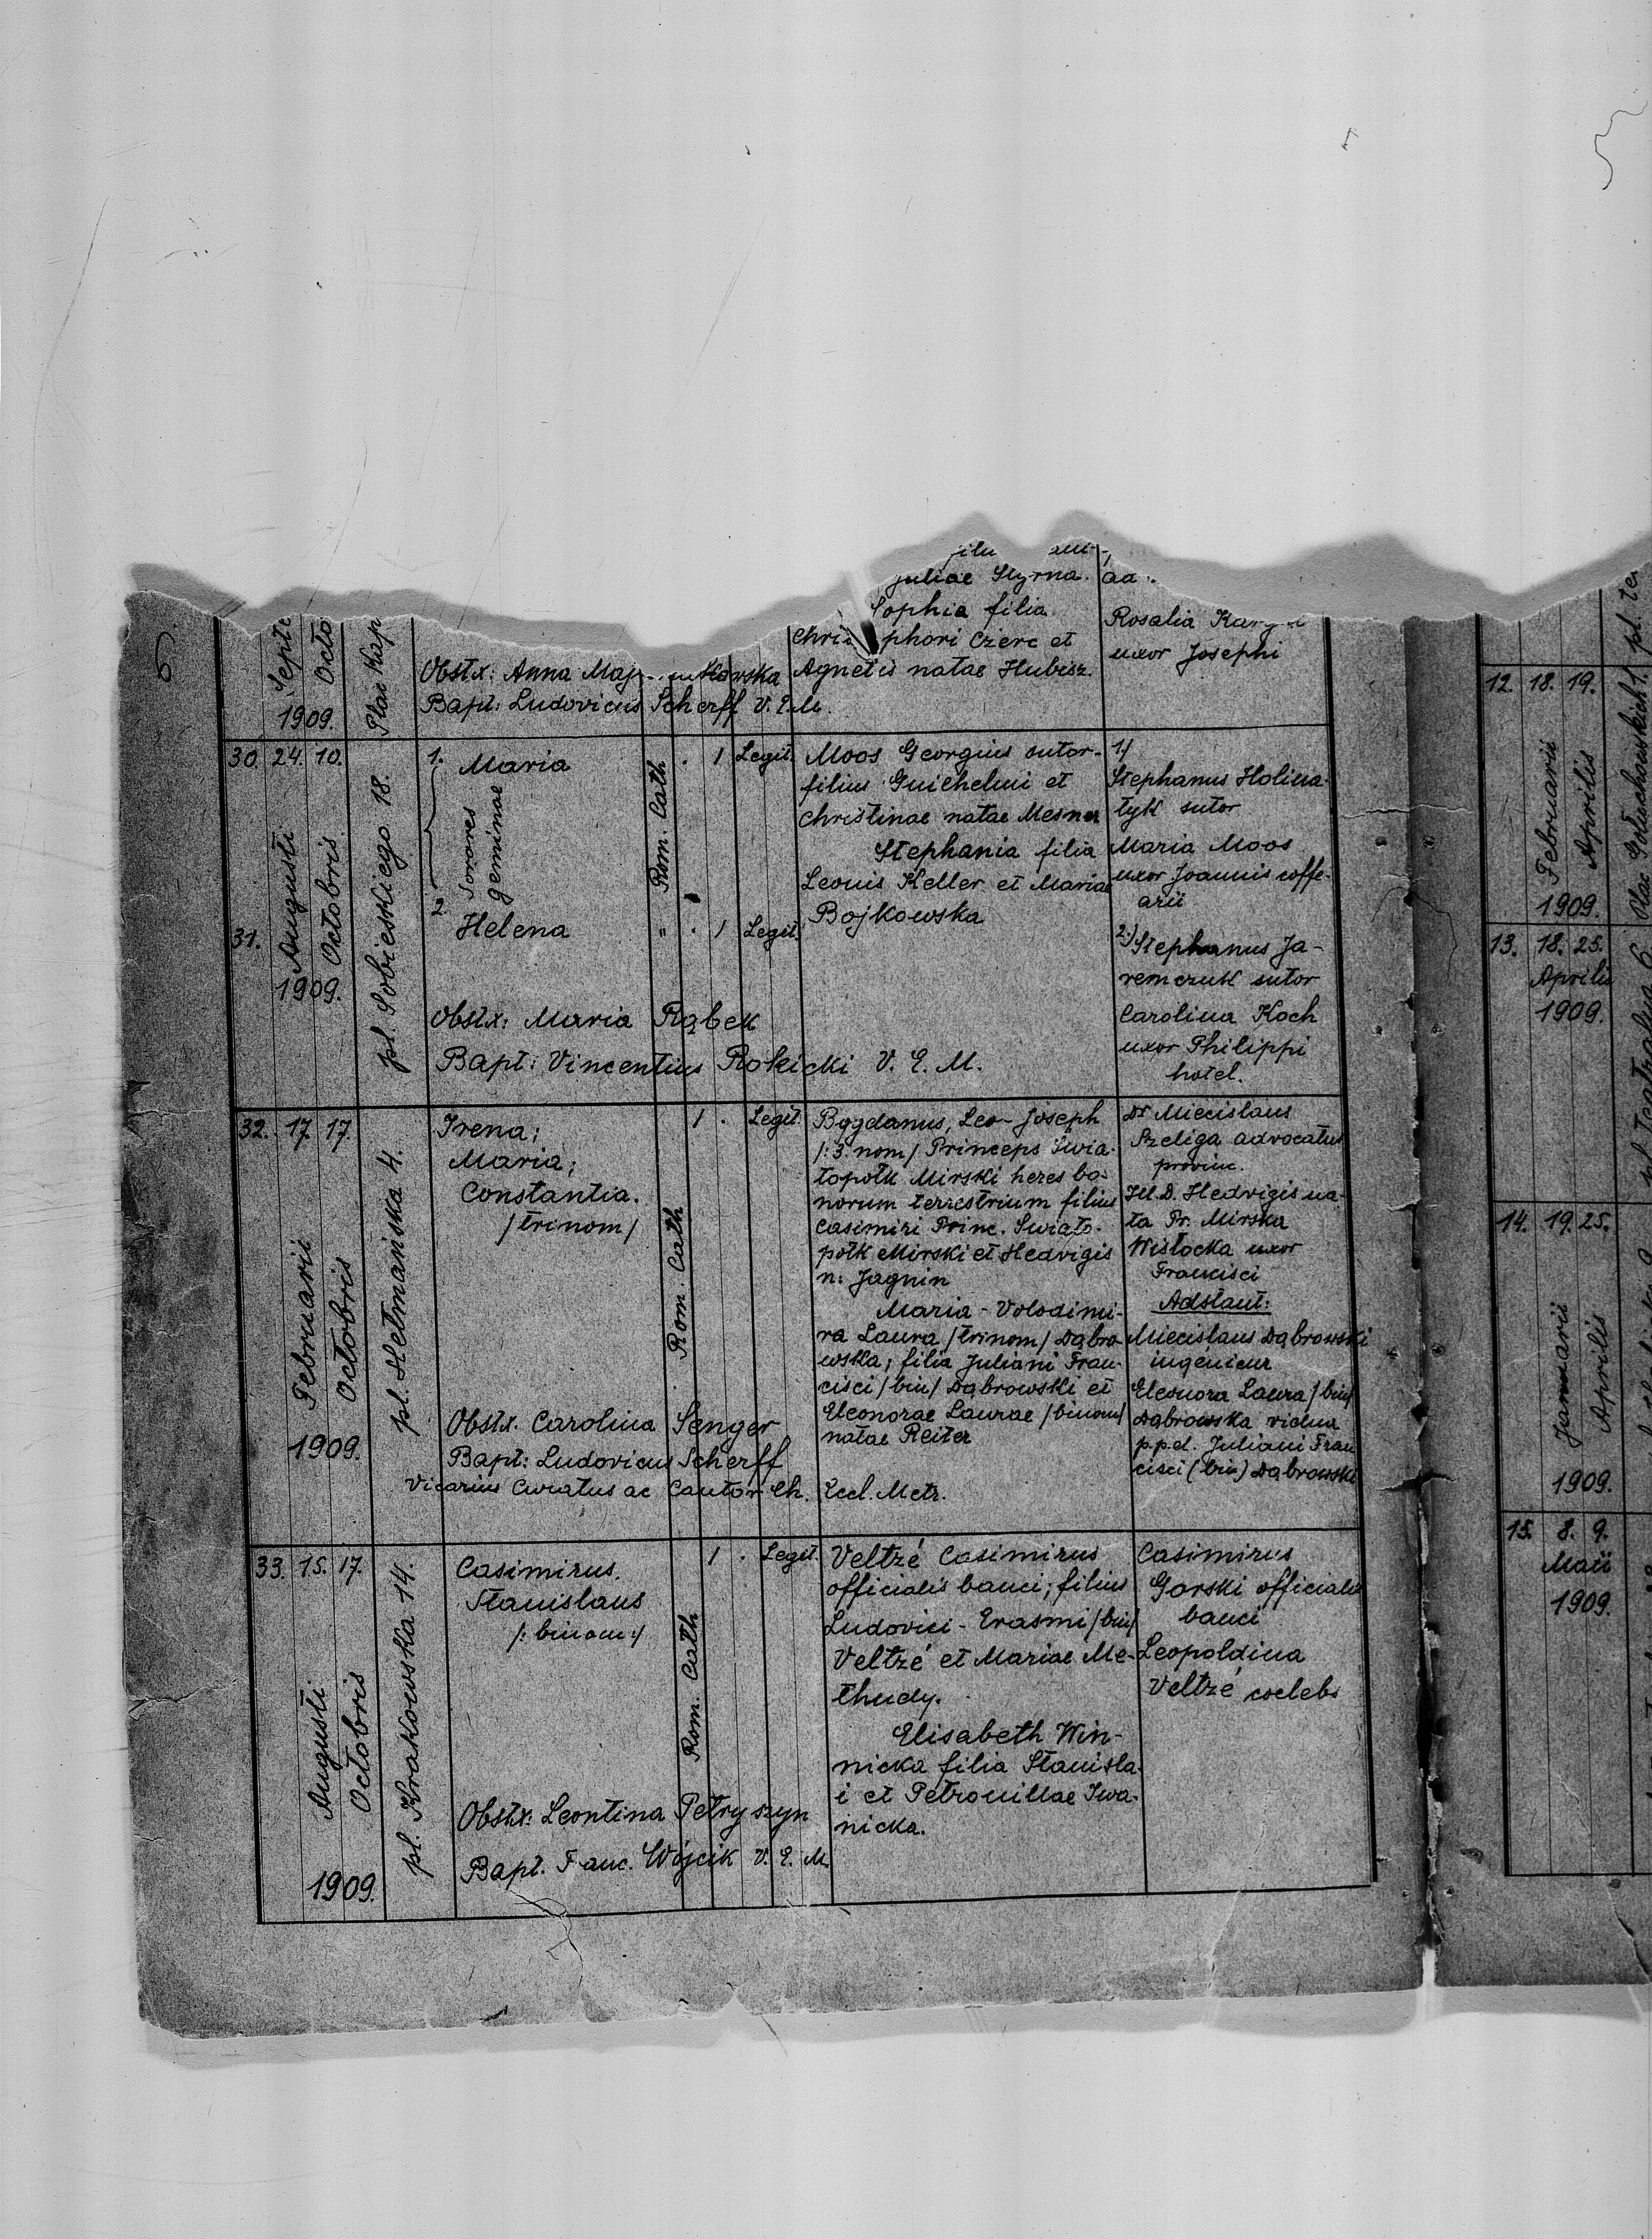 Juliae Styrna.
Sophia filia
Rosalia
phori Czerc et
uxor Josephi
Septe
Octo
1909.
Plac Kap
Obstx: Anna
Agnetis natae Hubisz.
Bapt: Ludovicus Scherff V. E. M.
30. 24. 10.
Augusti
Octobris
1909.
pl. Sobieskiego 18.
1. Maria
Sorores
geminae
Rom. Cath
. 1 Legit.
Moos Georgius sutor-
filius Guilhelmi et
Christinae natae Mesner
Stephania filia
Leonis Keller et Mariae
Bojkowska
1./
Stephanus Holina-
tyk sutor
Maria Moos
uxor Joannis coffe-
arii
31.
2.
Helena
" . 1 Legit.
2./ Stephanus Ja-
remczuk sutor
Carolina Koch
uxor Philippi
hotel.
Obstx: Maria Rąbek
Bapt: Vincentius Rokicki V. E. M.
32. 17. 17.
Februarii
Octobris
1909.
pl. Hetmańska 4.
Irena;
Maria;
Constantia.
/trinom/
Rom. Cath
1 . Legit.
Bogdanus, Leo-Joseph
/:3. nom/ Princeps Świa-
topołk Mirski heres bo-
norum terrestrium filius
Casimiri Princ. Światо-
połk Mirski et Hedvigis
n: Jagnin
Maria - Volodimi-
ra Laura /trinom/ Dąbro-
wska; filia Juliani Fran-
cisci /bin/ Dąbrowski et
Eleonorae Laurae /binom/
natae Reiter
Dr Miecislaus
Szeliga advocatus
provinc.
Ill. D. Hedvigis na-
ta Pr. Mirska
Wisłocka uxor
Francisci
Adstant:
Miecislaus Dąbrowski
ingénieur
Eleonora Laura /bin/
Dąbrowska vidua
p.p.d. Juliani Fran
cisci (bin) Dąbrowski
Obstx. Carolina Senger
Bapt: Ludovicus Scherff
Vicarius Curatus ac Cantor Ch. Eccl. Metr.
33. 15. 17.
Augusti
Octobris
1909.
pl. Krakowska 14.
Casimirus.
Stanislaus
/: binom:/
Rom. Cath
1 . Legit.
Veltzé Casimirus
officialis banci; filius
Ludovici - Erasmi /bin/
Veltzé et Mariae Me-
thudy.
Elisabeth Win-
nicka filia Stanisla-
i et Petronillae Iwa-
nicka.
Casimirus
Gorski officialis
banci
Leopoldina
Veltzé coelebs
Obstx: Leontina Petryszyn
Bapt. Franc. Wójcik V. E. M.
12. 18. 19.
Februarii
Aprilis
1909.
13. 18. 25.
Aprilis
1909.
14. 19. 25.
Januarii
Aprilis
1909.
15. 8. 9.
Maii
1909.